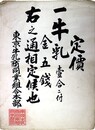 定價
一牛乳壹合ニ付
金五銭
右之通相定候也
東京牛乳搾取業組合本部